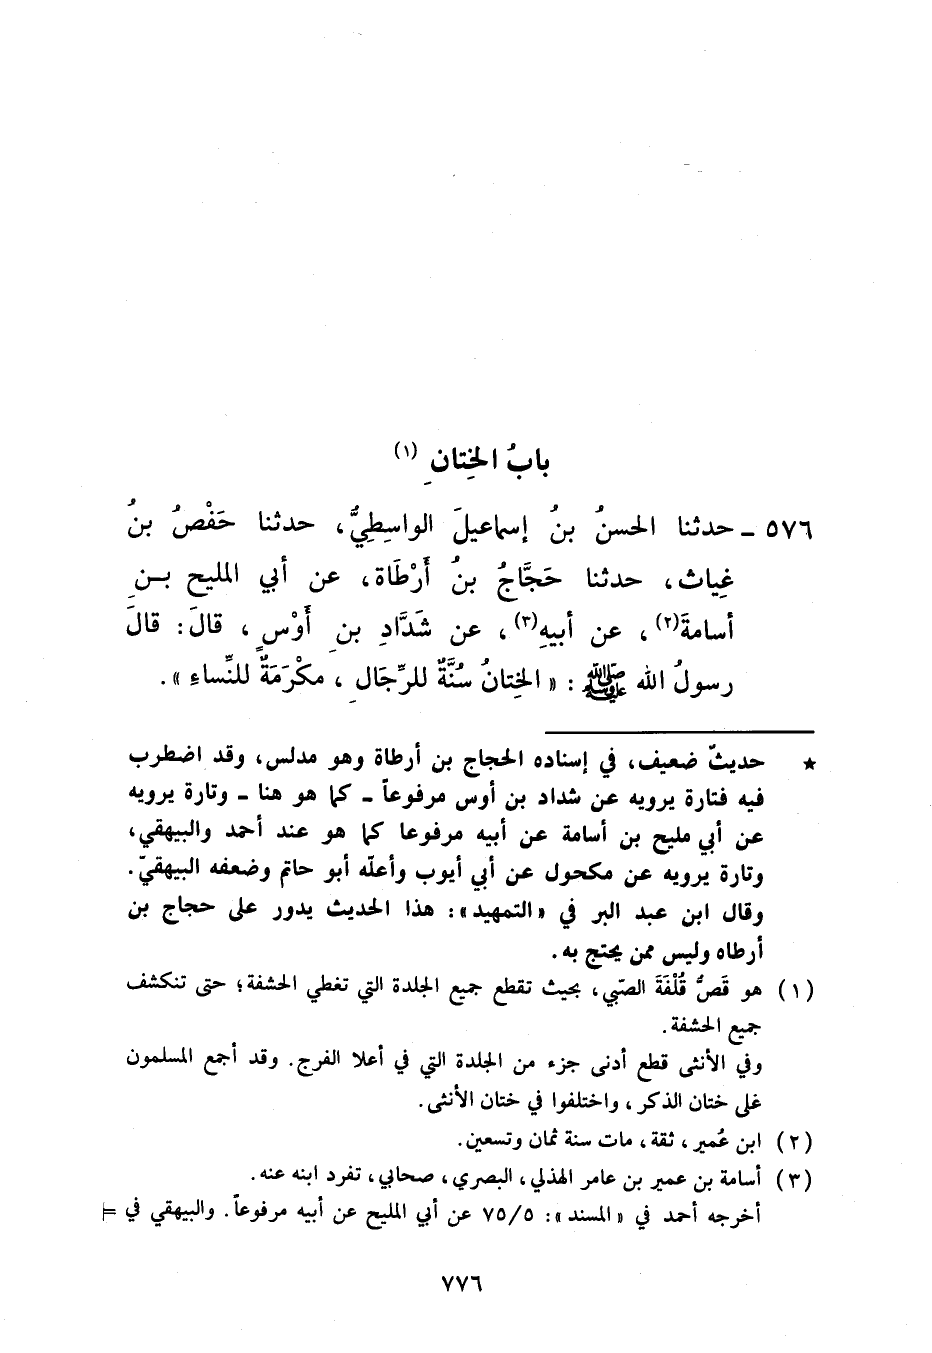 بابُ الخِتانِ (١)
٥٧٦ ـ حدثنا الحسنُ بنُ إسماعيلَ الواسِطِيُّ، حدثنا حَفْصُ بنُ
غِياث، حدثنا حَجَّاجُ بنُ أَرْطَاة، عن أبي المليح بـنِ
أسامةَ(٢)، عن أبيهِ(٣)، عن شَدَّادِ بنِ أَوْسٍ، قالَ: قالَ
رسولُ الله ﷺ: «الخِتانُ سُنَّةٌ للرِّجَالِ، مكْرَمَةٌ للنِّساءِ».
★ حديثٌ ضعيف، في إسناده الحجاج بن أرطاة وهو مدلس، وقد اضطرب
فيه فتارة يرويه عن شداد بن أوس مرفوعاً ـ كما هو هنا ـ وتارة يرويه
عن أبي مليح بن أسامة عن أبيه مرفوعا كما هو عند أحمد والبيهقي،
وتارة يرويه عن مكحول عن أبي أيوب وأعلّه أبو حاتم وضعفه البيهقيّ.
وقال ابن عبد البر في «التمهيد»: هذا الحديث يدور على حجاج بن
أرطاه وليس ممن يحتج به.
(١) هو قَصُّ قُلْفَةَ الصّبي، بحيث تقطع جميع الجلدة التي تغطي الحشفة؛ حتى تنكشف
جميع الحشفة.
وفي الأنثى قطع أدنى جزء من الجلدة التي في أعلا الفرج. وقد أجمع المسلمون
على ختان الذكر، واختلفوا في ختان الأنثى.
(٢) ابن عُمير، ثقة، مات سنة ثمان وتسعين.
(٣) أسامة بن عمير بن عامر الهذلي، البصري، صحابي، تفرد ابنه عنه.
أخرجه أحمد في «المسند»: ٧٥/٥ عن أبي المليح عن أبيه مرفوعاً. والبيهقي في =
٧٧٦